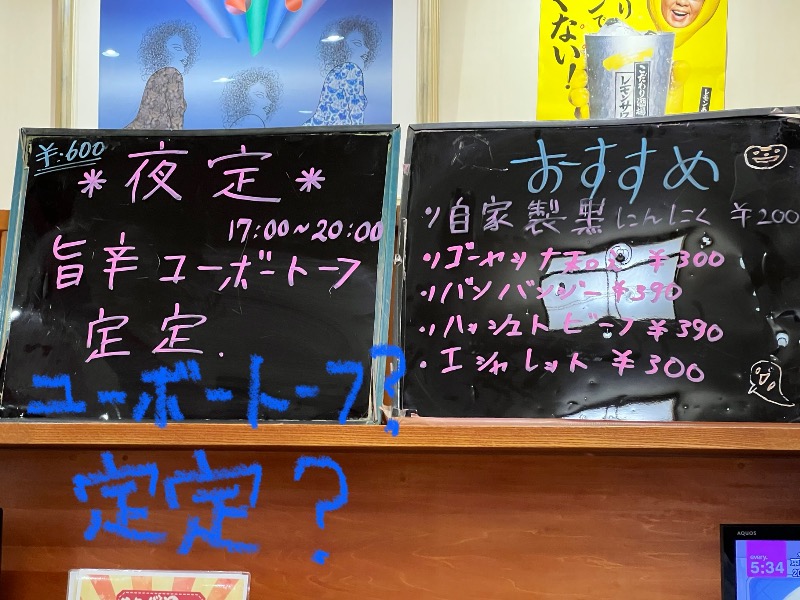 ¥.600
*夜定*
17:00~20:00
旨辛ユーボートーフ
定定.
おすすめ
・自家製黒にんにく ¥200
・バンバンジー ¥390
・ハッシュトビーフ ¥390
・エシャレット ¥300
ユーボートーフ?
定定?
くない!
こだわり酒場
レモンサワー
AQUOS
every.
5:34